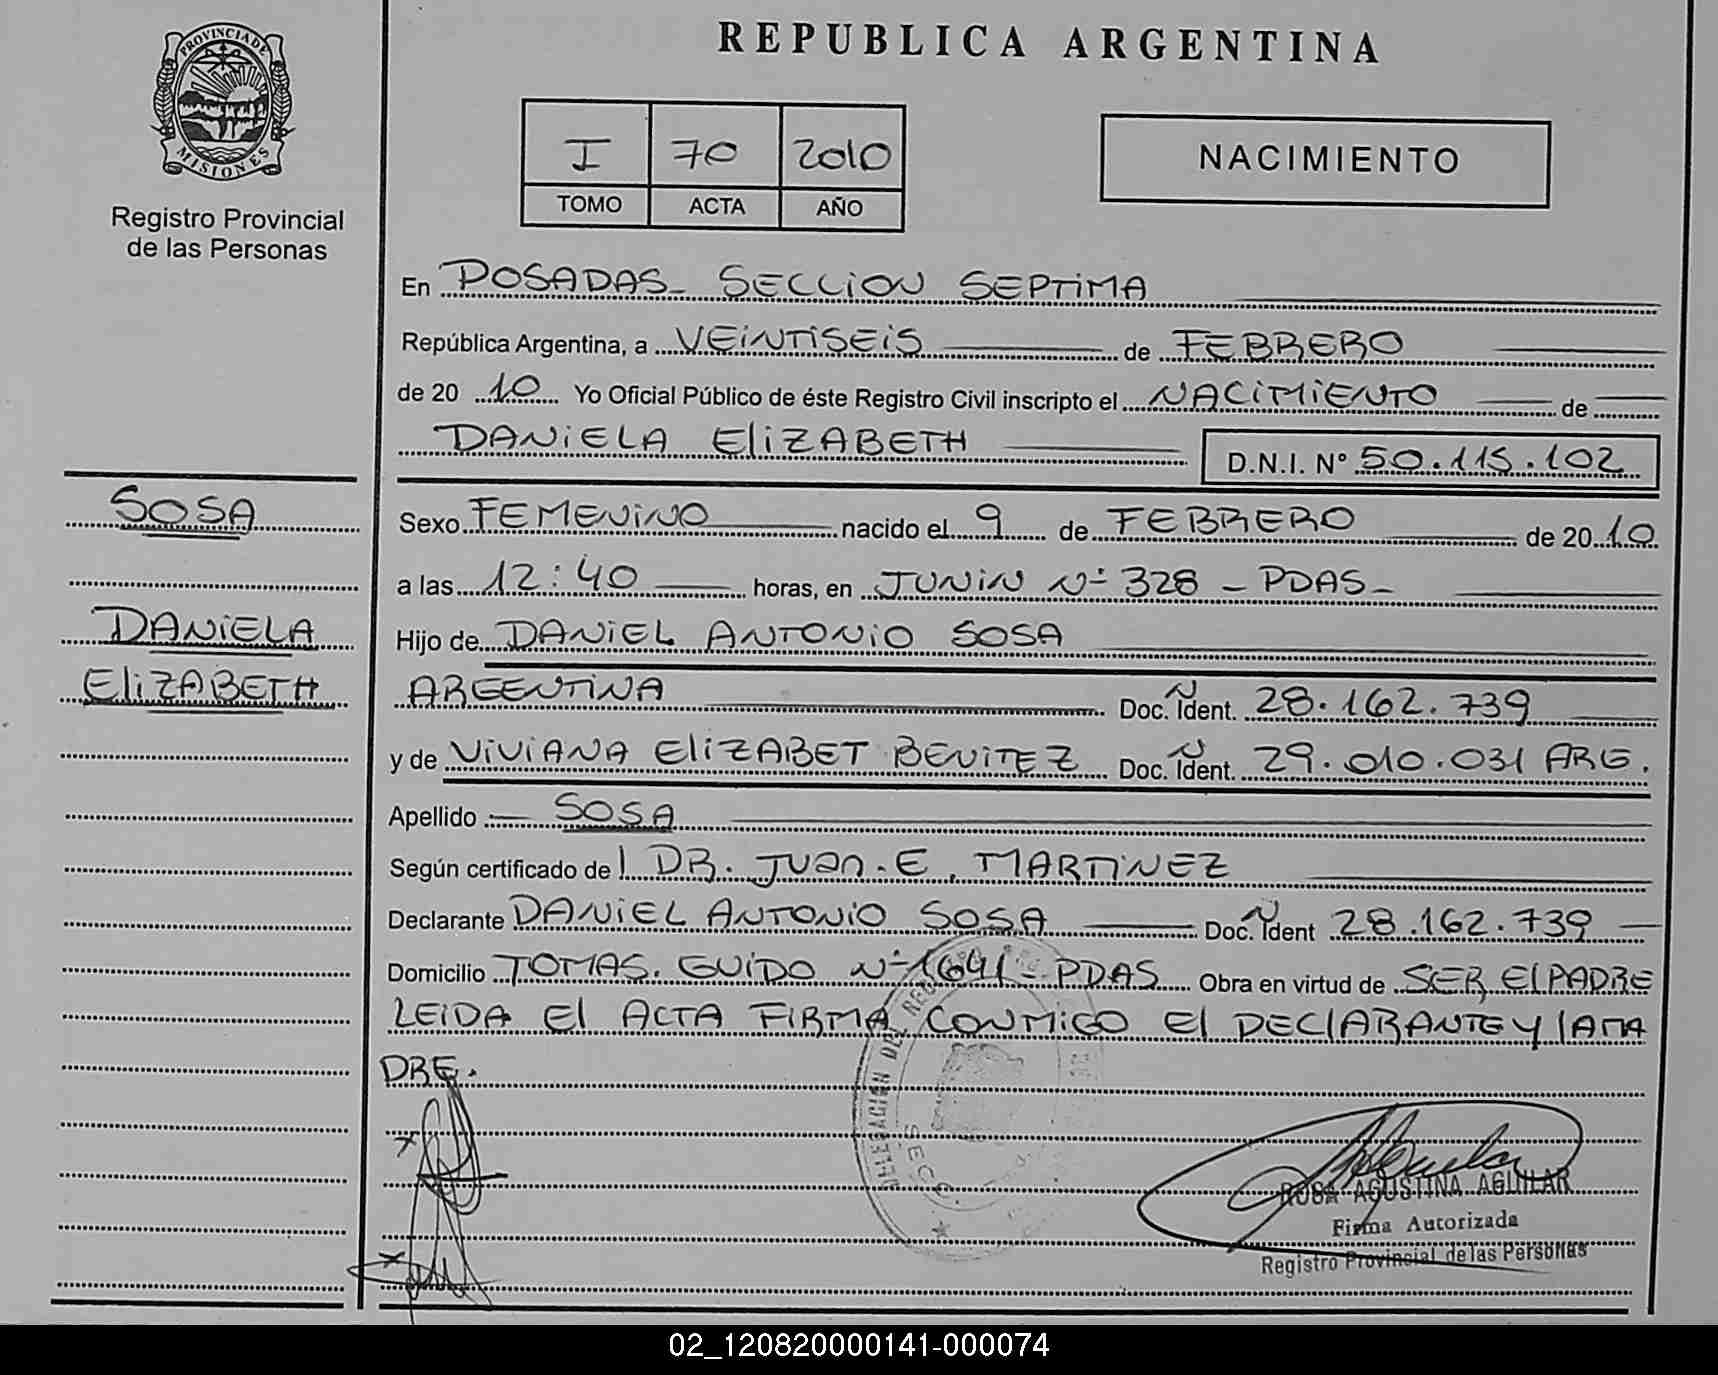 REPUBLICA ARGENTINA
PROVINCIA DE
MISIONES
Registro Provincial
de las Personas
I 70 2010
TOMO ACTA AÑO
NACIMIENTO
En POSADAS - SECCION SEPTIMA
República Argentina, a VEINTISEIS de FEBRERO
de 20 10 Yo Oficial Público de éste Registro Civil inscripto el NACIMIENTO de
DANIELA ElizABETH D.N.I. N° 50.115.102
SOSA
DANIELA
ElizABETH
Sexo FEMENINO nacido el 9 de FEBRERO de 20 10
a las 12:40 horas, en JUNIN Nº 328 - PDAS -
Hijo de DANIEL ANTONIO SOSA
ARGENTINA Doc. Ident. N 28.162.739
y de VIVIANA ElizABET BENITEZ Doc. Ident. N 29.010.031 ARG.
Apellido :— SOSA
Según certificado de DR. JUAN. E. MARTINEZ
Declarante DANIEL ANTONIO SOSA Doc. Ident N 28.162.739
Domicilio TOMAS. GUIDO Nº 1691 - PDAS Obra en virtud de SER El PADRE
LEIDA El ACTA FIRMA CONMIGO El DEClARANTE Y lA MA
DRE.
DELEGACION DEL
SECC.
ROSA AGUSTINA AGUILAR
Firma Autorizada
Registro Provincial de las Personas
02_120820000141-000074